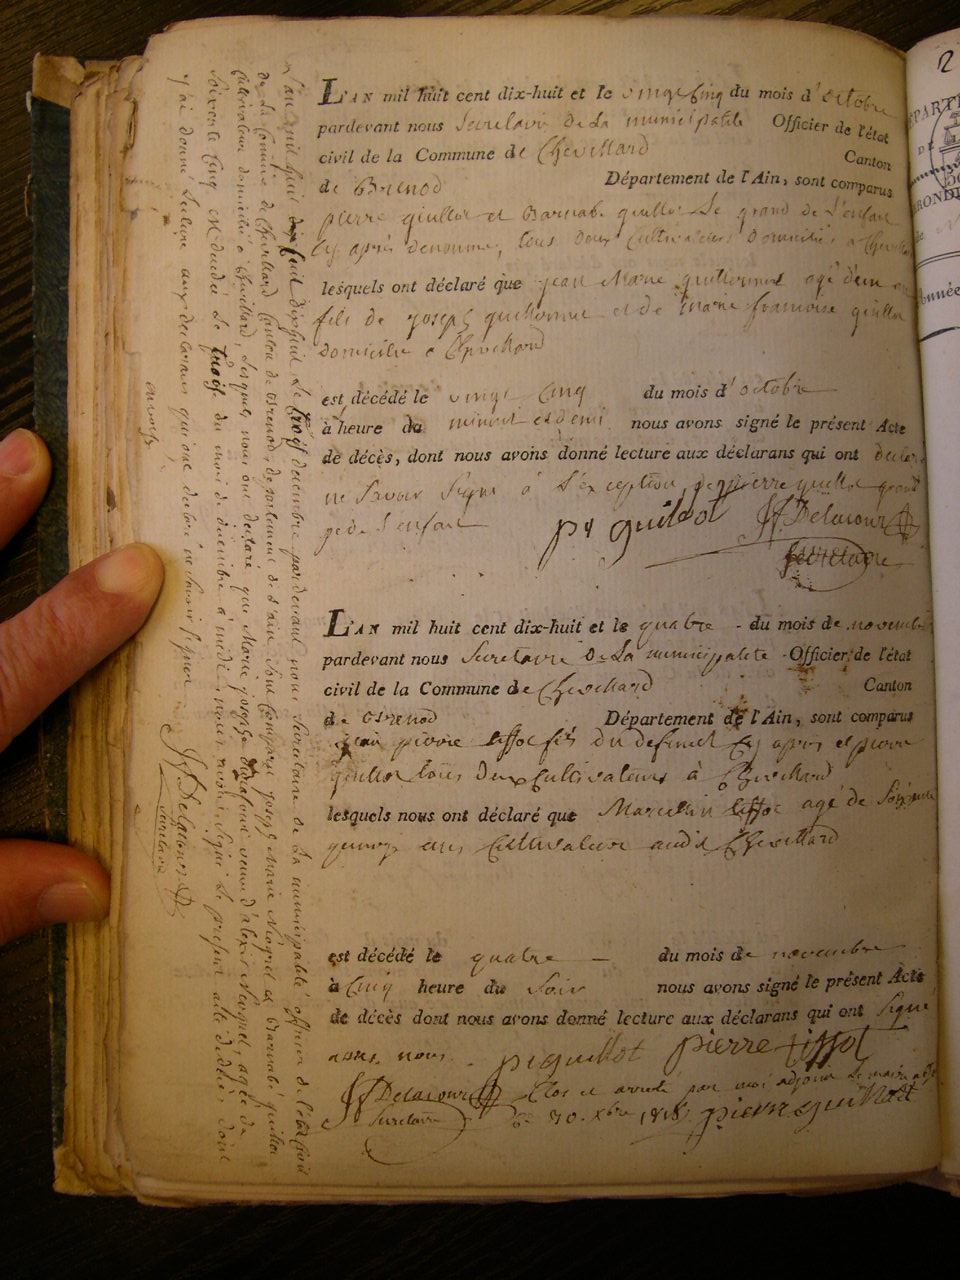 L'AN mil huit cent dix-huit et le vingt Cinq du mois d'octobre
pardevant nous Secretaire de La municipalité Officier de l'état
civil de la Commune de Chevillard Canton
de Brenod Département de l'Ain, sont comparus
pierre guillot et Barnabé guillot Le grand de L'enfant
Cy après denommé, tous deux Cultivateurs Domiciliés a
lesquels ont déclaré que jean Marie guillermet agé d'un an
fils de joseph guillermet et de marie francoise guillot
domicilié a Chevillard
est décédé le vingt Cinq du mois d'octobre
à heure de minuit et demi nous avons signé le présent Acte
de décès, dont nous avons donné lecture aux déclarans qui ont
ne Savoir Signé à L'exception de pierre guillot grand
pere de L'enfant py guillot JF Delacour
Secretaire
L'AN mil huit cent dix-huit et le quatre du mois de novembre
pardevant nous Secretaire De La municipalité Officier de l'état
civil de la Commune de Chevillard Canton
de Brenod Département de l'Ain, sont comparus
jean pierre tissot fils du defunct Cy après et pierre
guillot tous Deux Cultivateurs à Chevillard
lesquels nous ont déclaré que Marcellin tissot agé de Soixante
quinze ans Cultivateur audit Chevillard
est décédé le quatre du mois de novembre
à Cinq heure du Soir nous avons signé le présent Acte
de décès dont nous avons donné lecture aux déclarans qui ont Signé
avec nous. py guillot pierre tissot
JF Delacour Clos et arreté par moi adjoint Le maire
Secretaire 30. Xbre 1818 pierre guillot
L'an mil huit dix huit Le trois decembre pardevant nous Secretaire de La municipalité officier de l'état Civil
de La Commune de Chevillard Canton de Brenod, departement de L'ain sont Comparus joseph Marie et Barnabé guillot
Cultivateurs domiciliés à Chevillard, Lesquels nous ont declaré que Marie josephe veuve d'alexis agée de
Soixante Cinq est decédée Le trois du mois de decembre a midi, nous avons Signé Le present acte de décès dont
j'ai donné Lecture aux declarants qui ont declaré ne Savoir Signer
JF Delacour
Secretaire
PARTE
DE
RONDI
Année